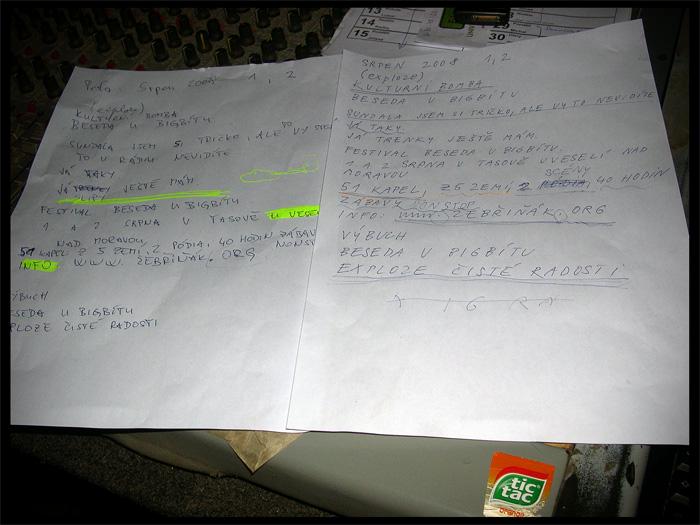 13
14
15
29
30
Srpen 2008 1, 2
(exploze)
KULTURNÍ BOMBA
BESEDA U BIGBÍTU
SUNDALA JSEM SI TRIČKO, ALE TO VY
TO U RÁDIA NEVIDÍTE
JÁ TAKY
JÁ SLIPY JEŠTĚ MÁM
FESTIVAL BESEDA U BIGBÍTU
1. A 2 SRPNA V TASOVĚ U VESE
NAD MORAVOU
51 KAPEL Z 5 ZEMÍ, 2 PÓDIA, 40 HODIN ZÁBAV
NONST
INFO WWW. ŽEBŘIŇÁK. ORG
ÝBUCH
ESEDA U BIGBÍTU
PLOZE ČISTÉ RADOSTI
SRPEN 2008 1, 2
(exploze)
KULTURNÍ BOMBA
BESEDA U BIGBÍTU
SUNDALA JSEM SI TRIČKO, ALE VY TO NEVIDÍTE
JÁ TAKY.
JÁ TRENKY JEŠTĚ MÁM.
FESTIVAL BESEDA U BIGBÍTU.
1 A 2 SRPNA V TASOVĚ U VESELÍ NAD
MORAVOU
SCÉNY
51 KAPEL, Z 5 ZEMÍ, 2 PÓDIA, 40 HODIN
ZÁBAVY NONSTOP
INFO: www. ŽEBŘIŇÁK. ORG
VÝBUCH
BESEDA U BIGBÍTU
EXPLOZE ČISTÉ RADOSTI
A IGRA
tic
tac
orange